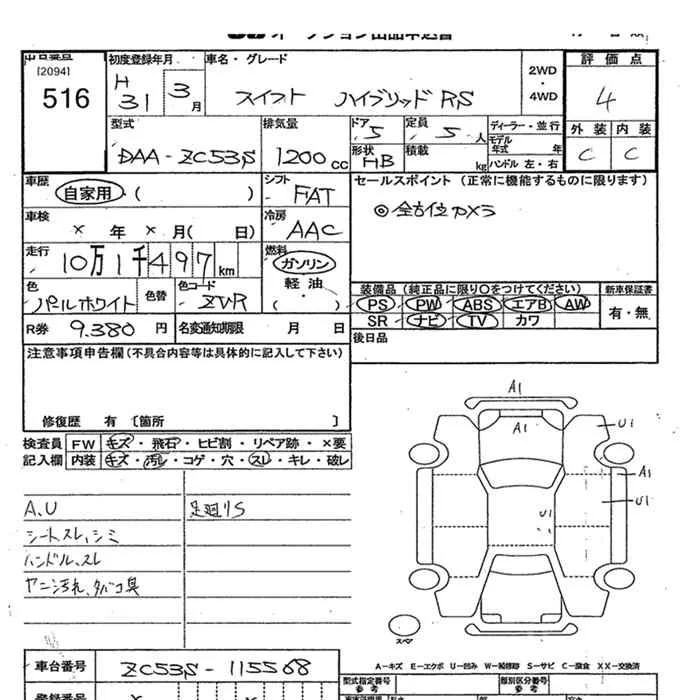 オークション出品申込書
出品番号
[2094]
516
初度登録年月
H
31 3月
車名・グレード
スイフト ハイブリッドRS
2WD
・
4WD
評価点
4
外装 内装
C C
型式
DAA-ZC53S
排気量
1200cc
ドア
5
定員
5人
ディーラー・並行
モデル
年式 年
形状
HB
積載
kg
ハンドル 左・右
車歴
自家用・( )
シフト
FAT
セールスポイント(正常に機能するものに限ります)
◎全方位カメラ
車検
×年×月( 日)
冷房
AAC
走行
10万1千497km
燃料
ガソリン
軽油
・( )
色
パールホワイト
色替
色コード
ZVR
装備品(純正品に限り○をつけてください)
新車保証書
PS PW ABS エアB AW
有・無
SR ナビ TV カワ
R券 9.380円
名変通知期限 月 日
後日品
注意事項申告欄(不具合内容等は具体的に記入して下さい)
修復歴 有〔箇所 〕
検査員
記入欄
FW キズ・飛石・ヒビ割・リペア跡・×要
内装 キズ・汚れ・コゲ・穴・スレ・キレ・破レ
A1
A1
U1
A1
U1
U1
A.U
足廻りS
シートスレ,シミ
ハンドル.スレ
ヤニ汚れ、タバコ臭
スペア
A-キズ E-エクボ U-凹み W-補修跡 S-サビ C-腐食 XX-交換済
車台番号
ZC53S-115568
型式指定番号
参考
類別区分番号
参考
登録番号